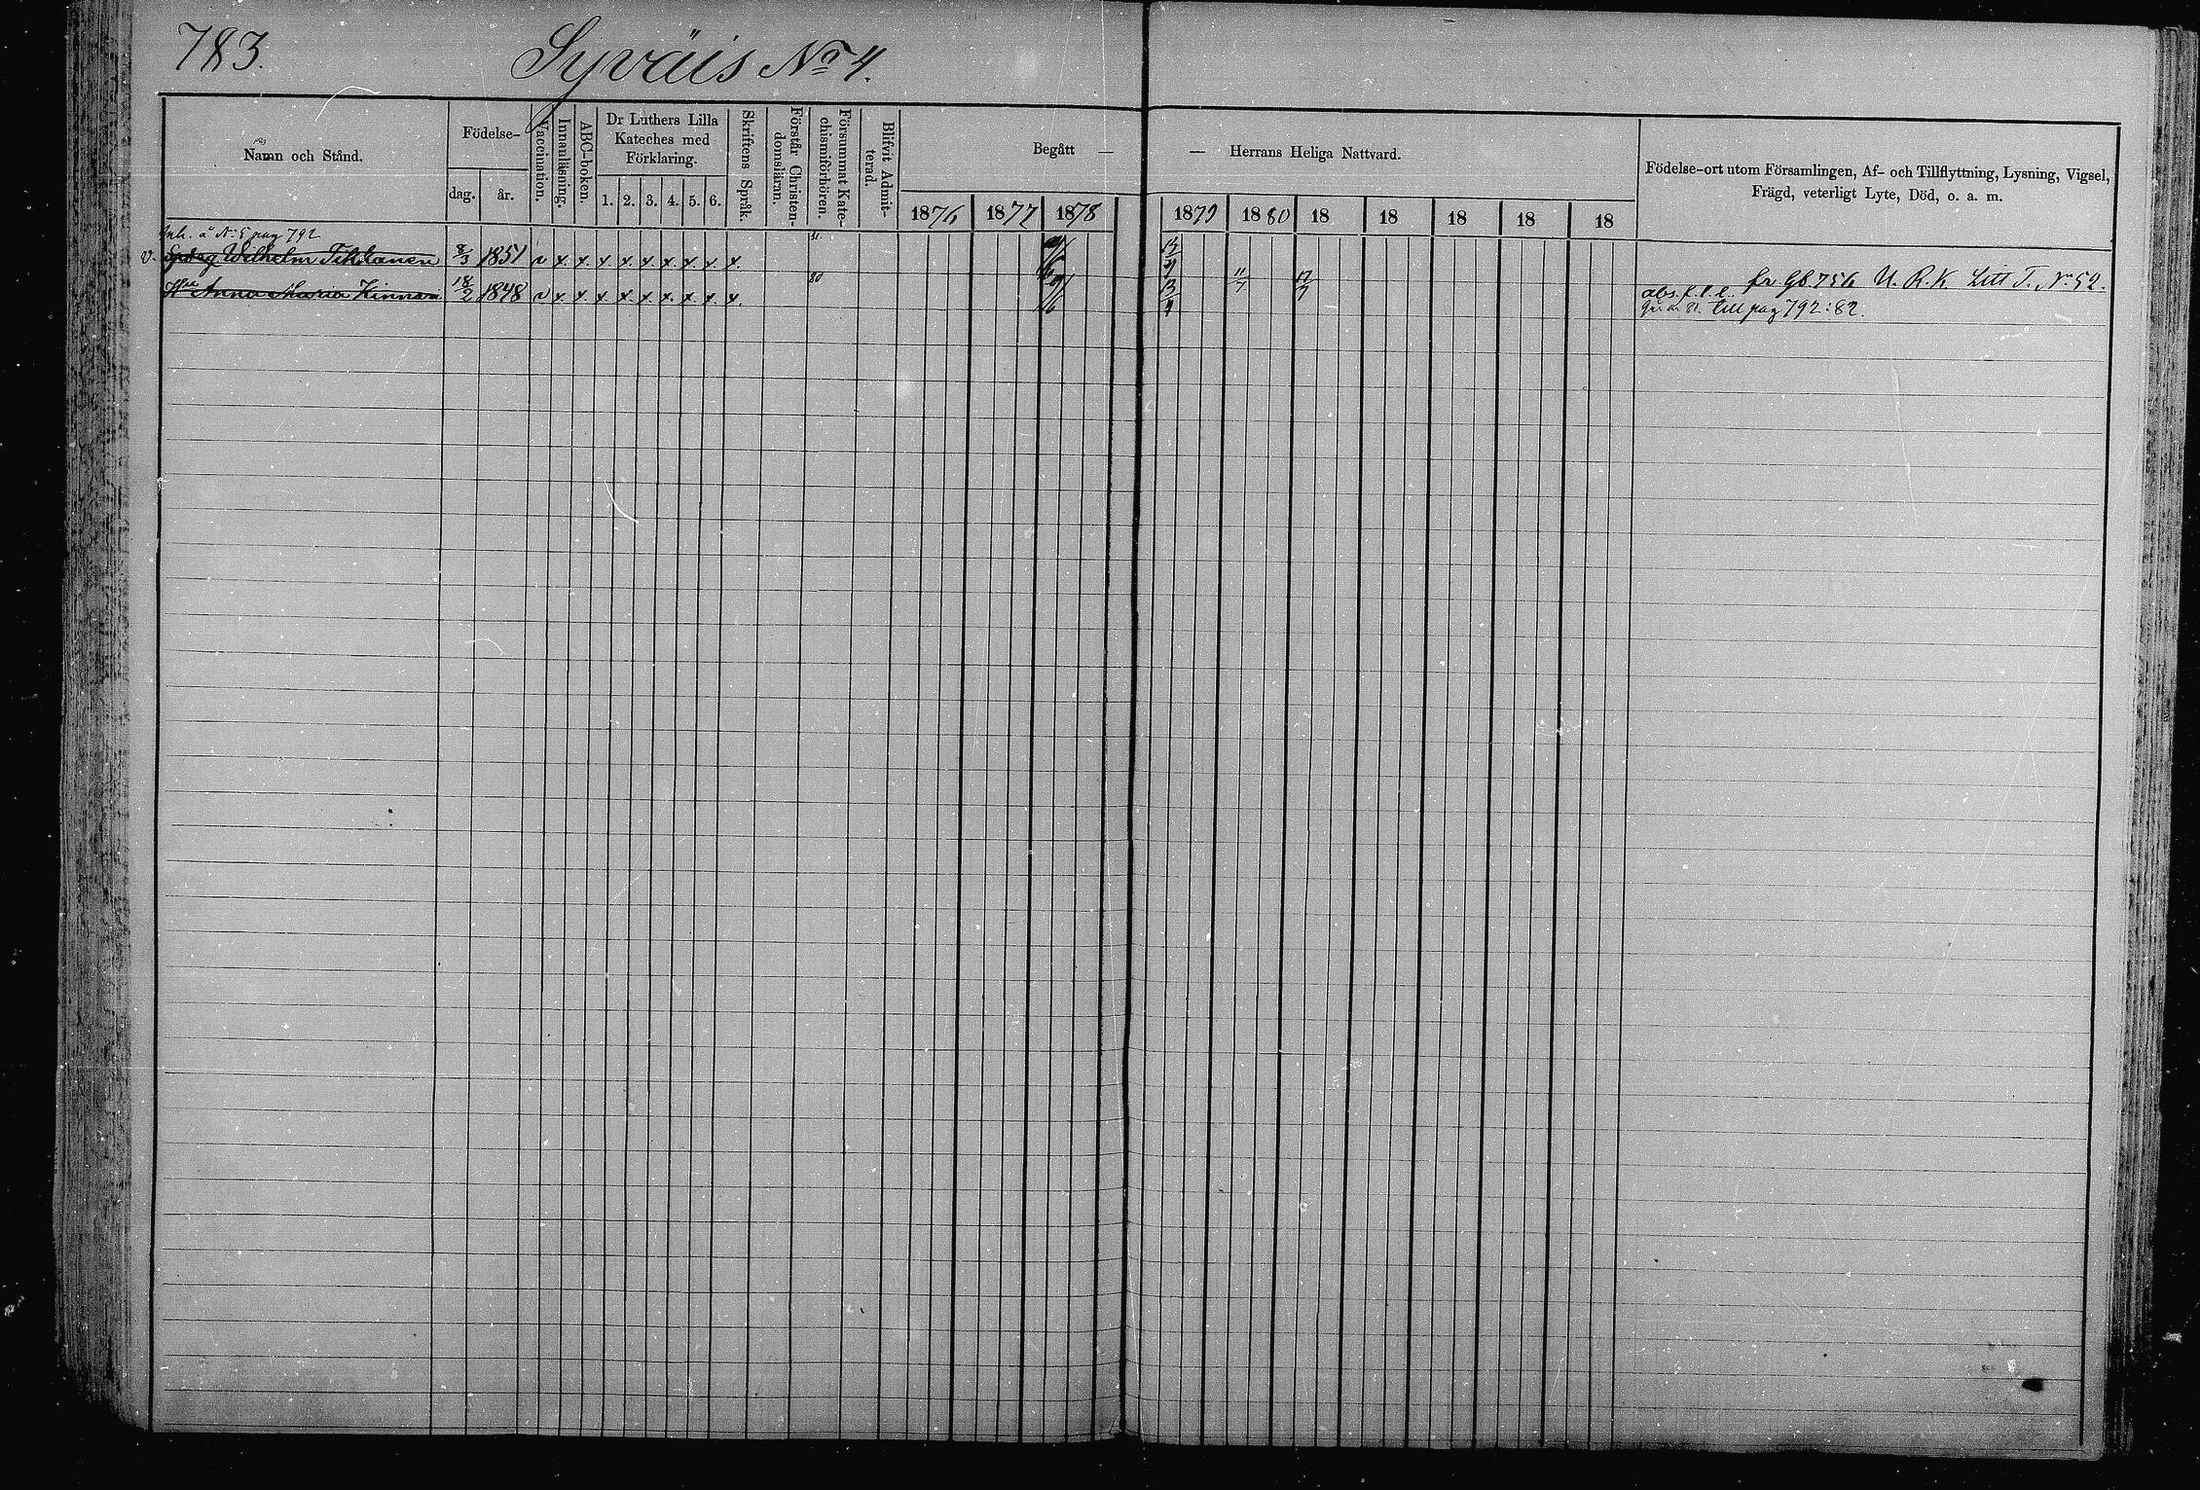 783.
Syväis No 4.
Namn och Stånd.
Födelse-
dag.
år.
Vaccination.
Innanläsning.
ABC-boken.
Dr Luthers Lilla
Kateches med
Förklaring.
1. 2. 3. 4. 5. 6.
Skriftens Språk.
Förstår Christen-
domsläran.
Försummat Kate-
chismiförhören.
Blifvit Admit-
terad.
Begått — — Herrans Heliga Nattvard.
1876 1877 1878 1879 1880 18 18 18 18 18
Födelse-ort utom Församlingen, Af- och Tillflyttning, Lysning, Vigsel,
Frägd, veterligt Lyte, Död, o. a. m.
Inh. å No 5 pag 792
v. Wilhelm Tikkanen 8/3 1851 v x. x. x x. x. x. x. x. x. 13/4
Anna Maria Kinnari 18/2 1848 v x. x. x x. x. x. x. x. x. 80 13/4 11/7 17/7
fr Gb 756 U. R. K. Litt T. No 52.
abs. f. l. l.
till pag 792:82.